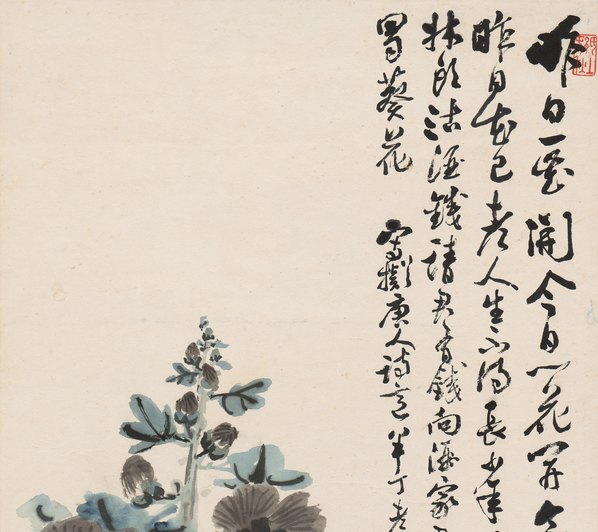 昨日一花開今日一花開今
昨日花已老人生不得長少年
牀頭沽酒錢請君有錢向酒家
蜀葵花 寫唐人詩意 半丁老